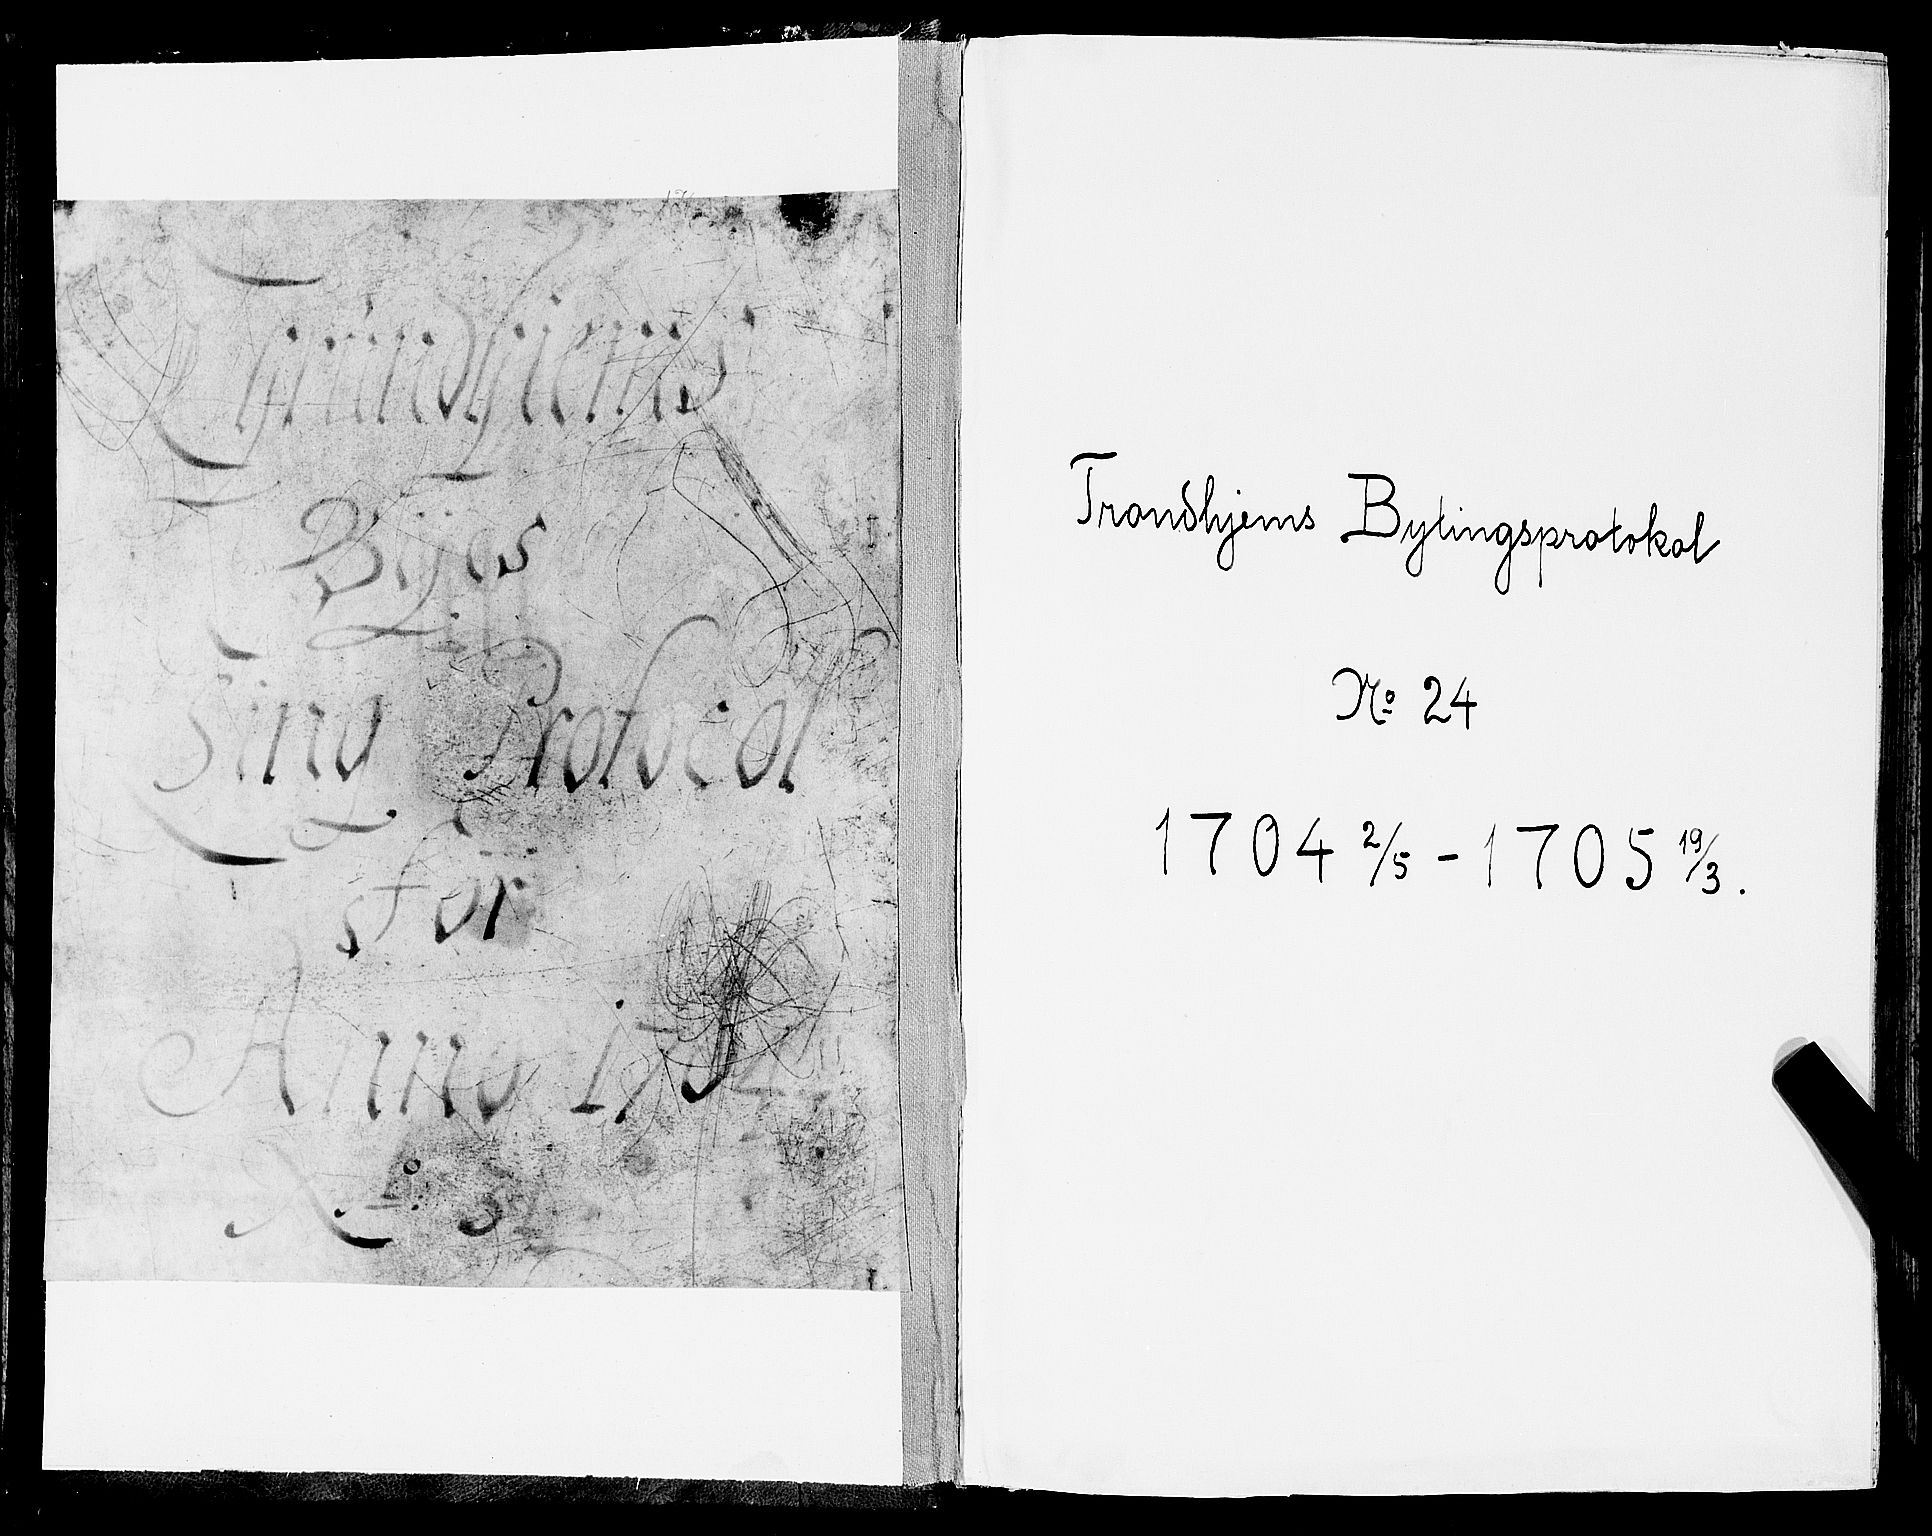 Trundhiems
Byes
Ting Protocol
for
Anno 1704
No. 3
Trondhjems Bytingsprotokol
No 24
1704 2/5 - 1705 19/3.